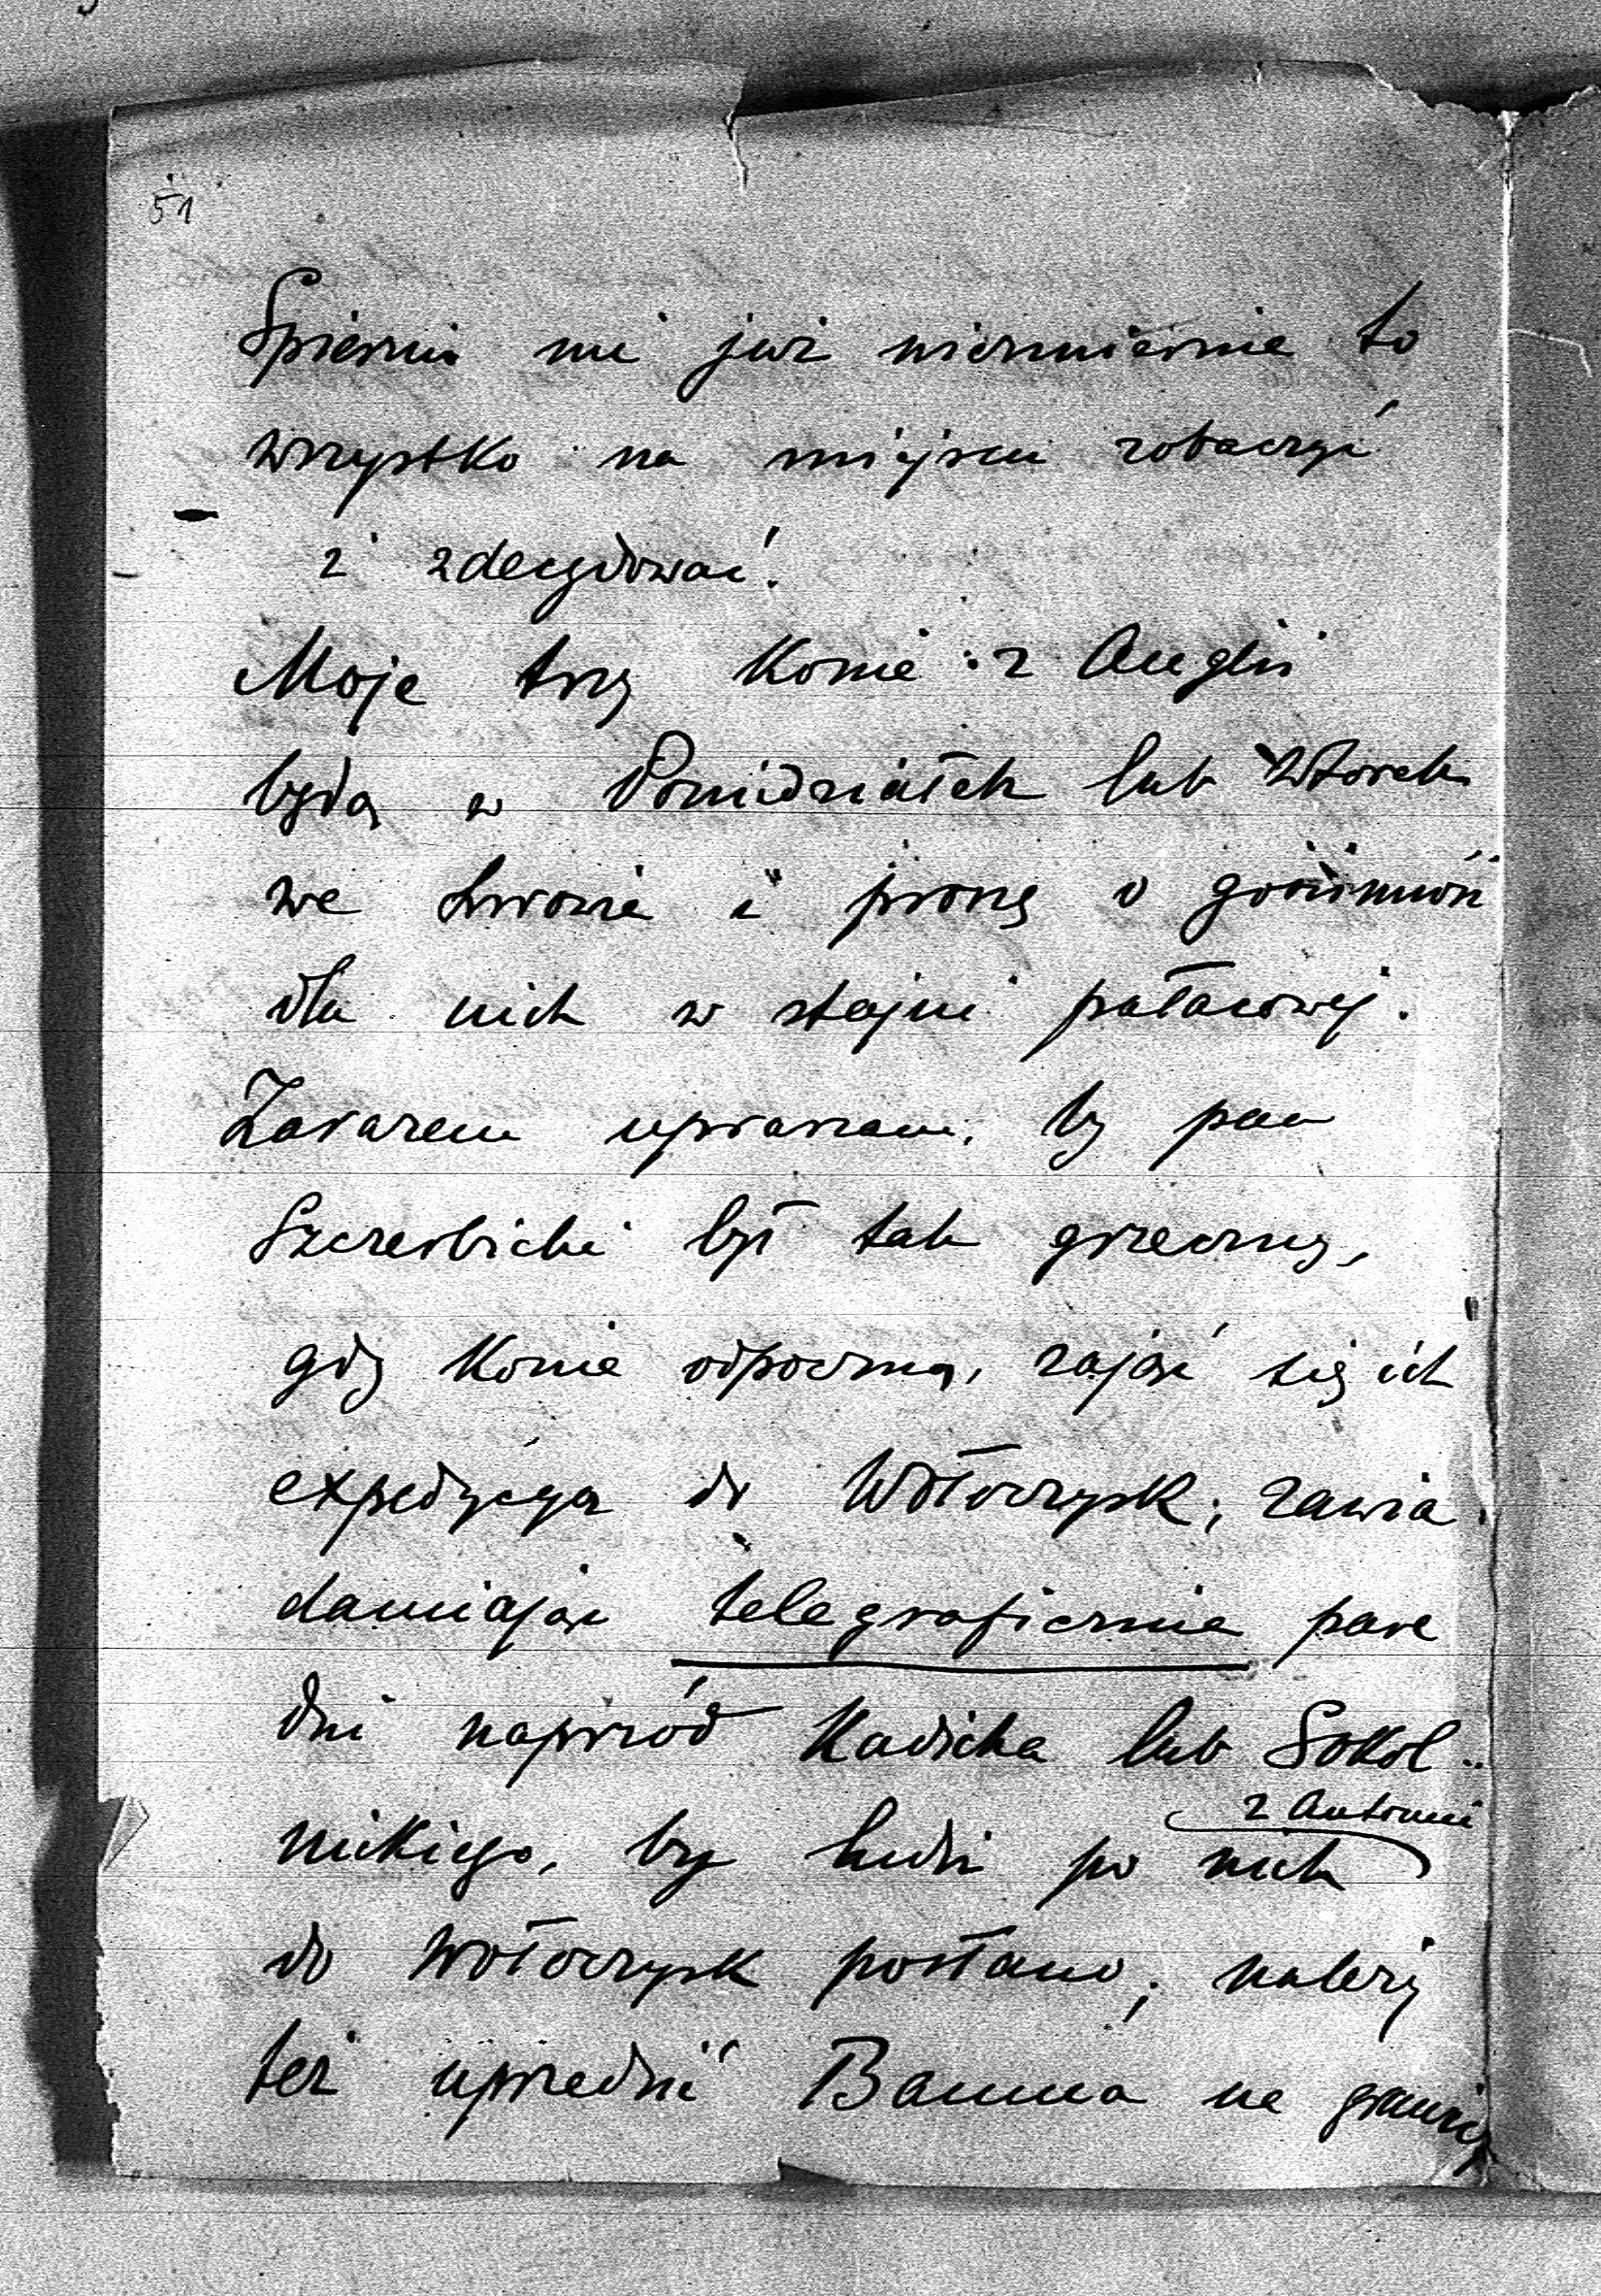 51
Spieszno mi już niezmiernie to
wszystko na miejscu zobaczyć
i zdecydować.
Moje trzy konie z Anglii
będą w Poniedziałek lub Wtorek
we Lwowie i proszę o gościnność
dla nich w stajni pałacowej.
Zarazem upraszam, by pan
Szczerbicki był tak grzeczny,
gdy konie odpoczną, zająć się ich
expedycyą do Wołoczysk, zawia
damiając telegraficznie parę
dni naprzód Radicka lub Sokol-
nickiego, by ludzi po nich
z Antonin
do Wołoczysk posłano; należy
też uprzedzić Bauma na granicy